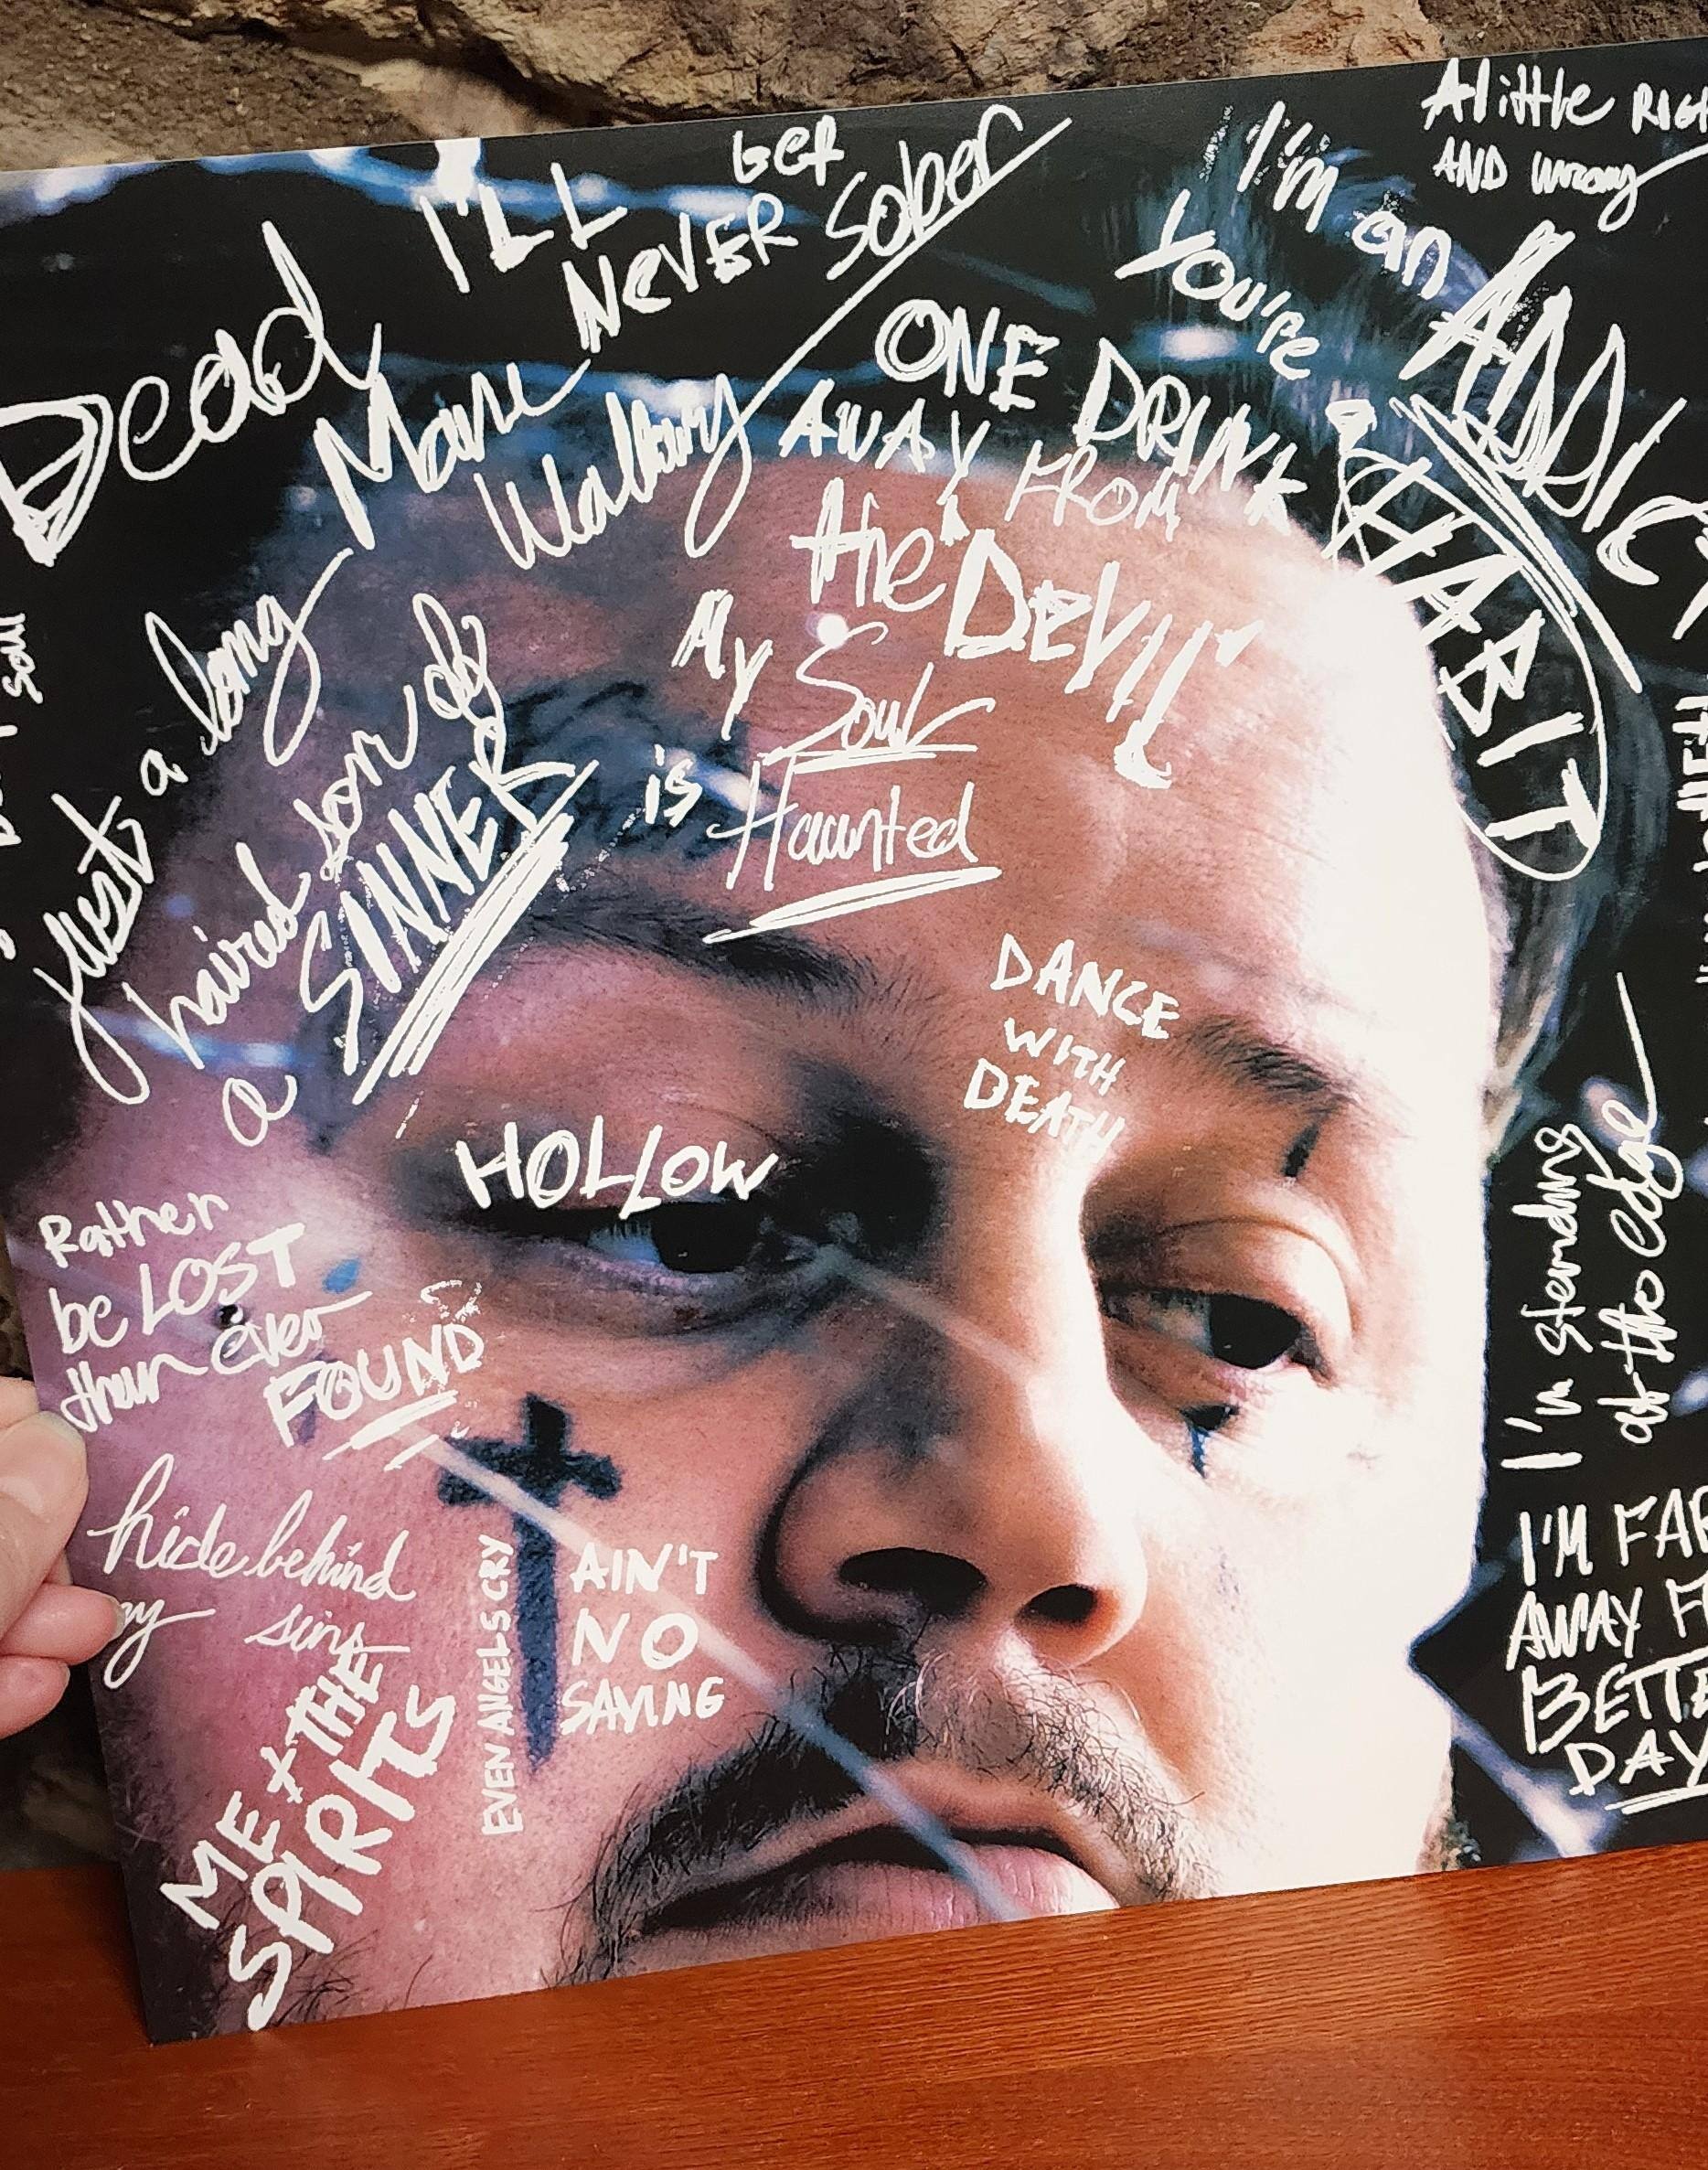 Dead
Man
Walking
I'LL
NEVER
GET
Sober
ONE DRINK
AWAY FROM
the DEVIL
I'm an
ADDICT
You're
a
HABIT
A little RIGHT
AND wrong
just a long
haired son of
a SINNER
My
Soul
is
Haunted
DANCE
WITH
DEATH
HOLLOW
Rather
be LOST
than ever
FOUND
hide behind
my sins
EVEN ANGELS CRY
AIN'T
NO
SAVING
ME + THE
SPIRITS
I'm standing
at the edge
I'M FAR
AWAY F
BETTE
DAY
soul